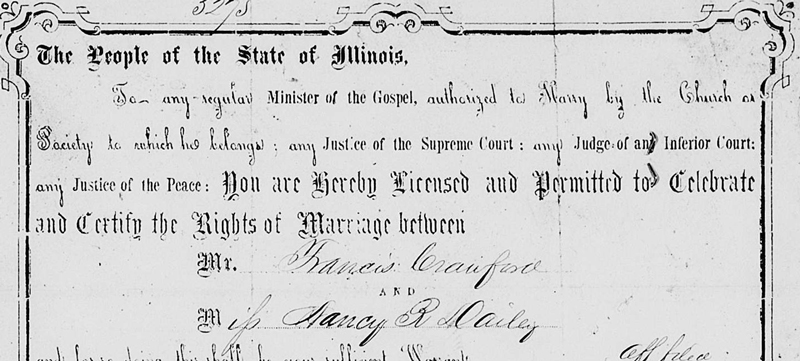 The People of the State of Illinois,
To any regular Minister of the Gospel, authorized to Marry by the Church or
Society to which he belongs; any Justice of the Supreme Court: any Judge of any Inferior Court:
any Justice of the Peace: You are Hereby Licensed and Permitted to Celebrate
and Certify the Rights of Marriage between
Mr. Francis Crawford
AND
Miss Nancy R Dailey
and for so doing this shall be your sufficient Warrant